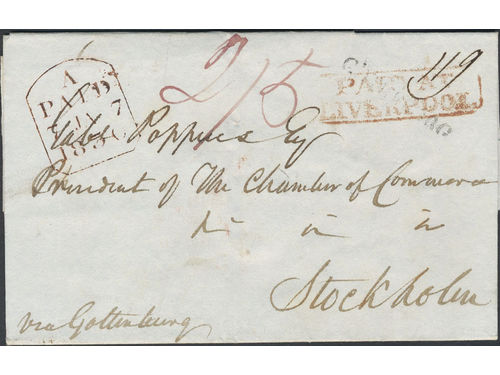 A
PAID
7
2/5
PAID AT
LIVERPOOL
Gabl Poppius Esq
President of The Chamber of Commerce
in
Stockholm
via Gottenburg